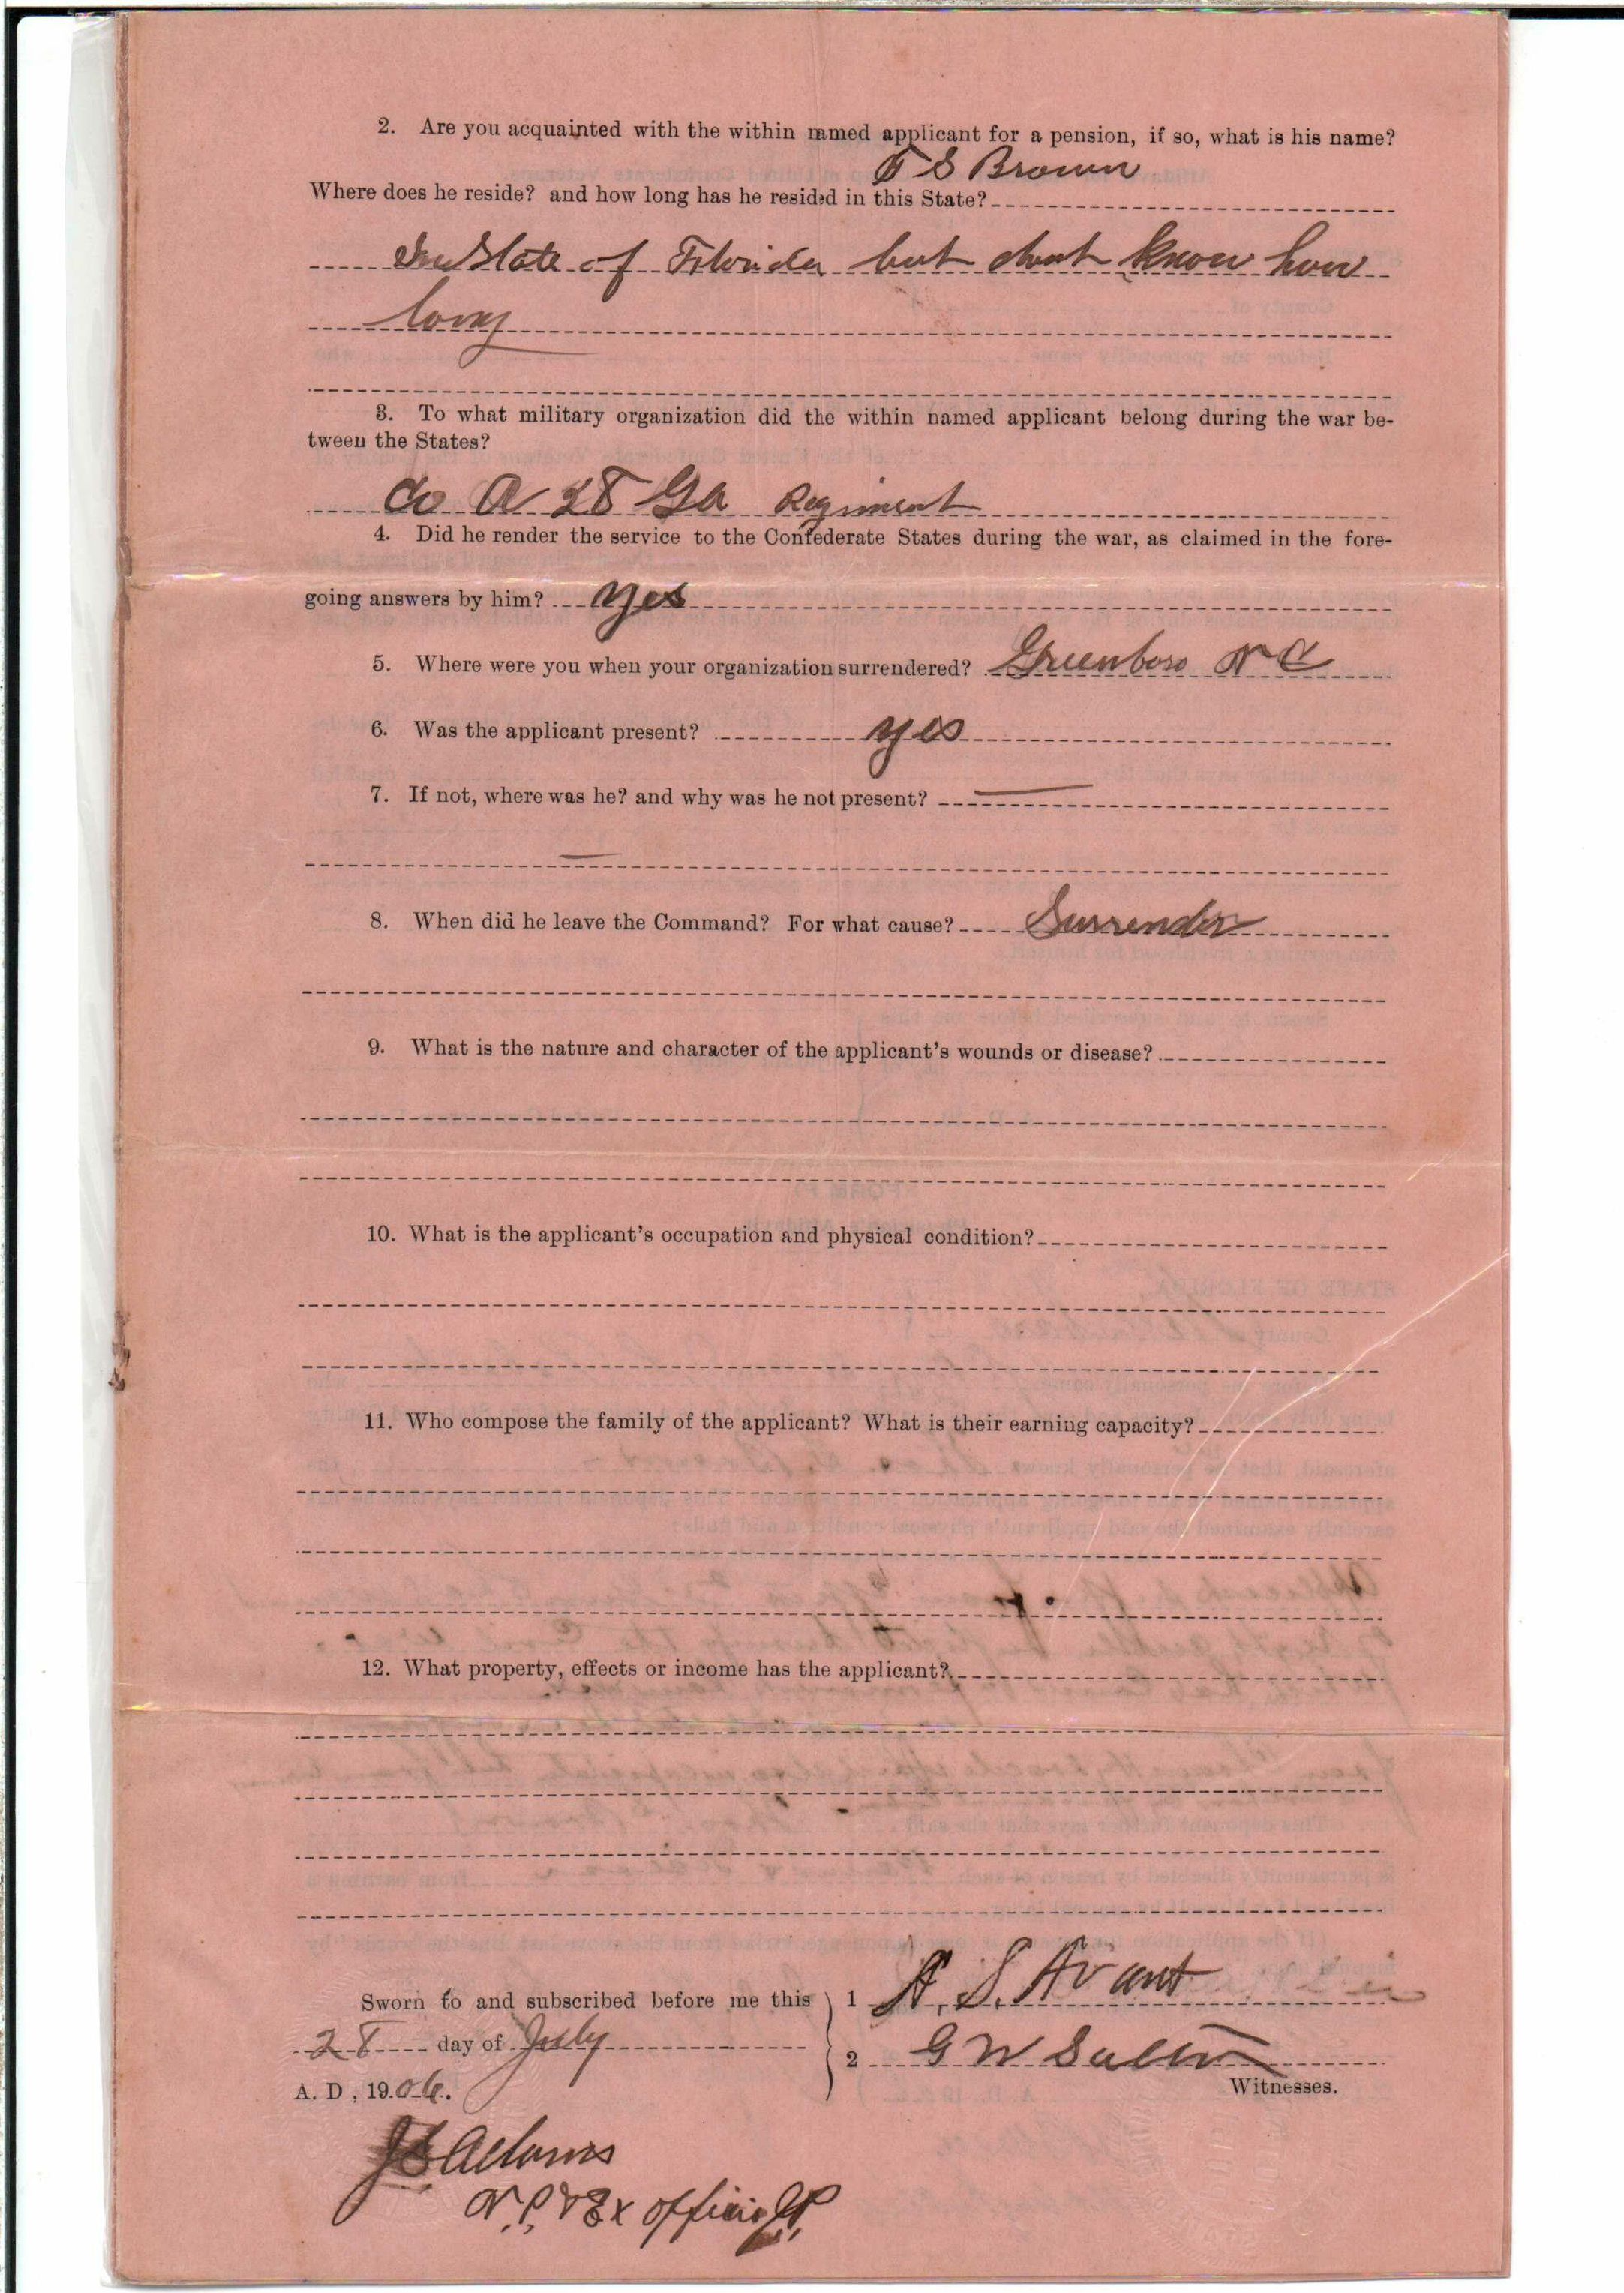 2. Are you acquainted with the within named applicant for a pension, if so, what is his name?
T S Brown
Where does he reside? and how long has he resided in this State?
In State of Florida but dont know how
long
3. To what military organization did the within named applicant belong during the war be-
tween the States?
Co A 28 Ga Regiment
4. Did he render the service to the Confederate States during the war, as claimed in the fore-
going answers by him? yes
5. Where were you when your organization surrendered? Greenboro N C
6. Was the applicant present? yes
7. If not, where was he? and why was he not present? —
—
8. When did he leave the Command? For what cause? Surrender
9. What is the nature and character of the applicant's wounds or disease?
10. What is the applicant's occupation and physical condition?
11. Who compose the family of the applicant? What is their earning capacity?
12. What property, effects or income has the applicant?
Sworn to and subscribed before me this
28 day of July
A. D, 1906.
1 A. S. Avant
2 G W
Witnesses.
Adams
N.P. & Ex officio J.P.